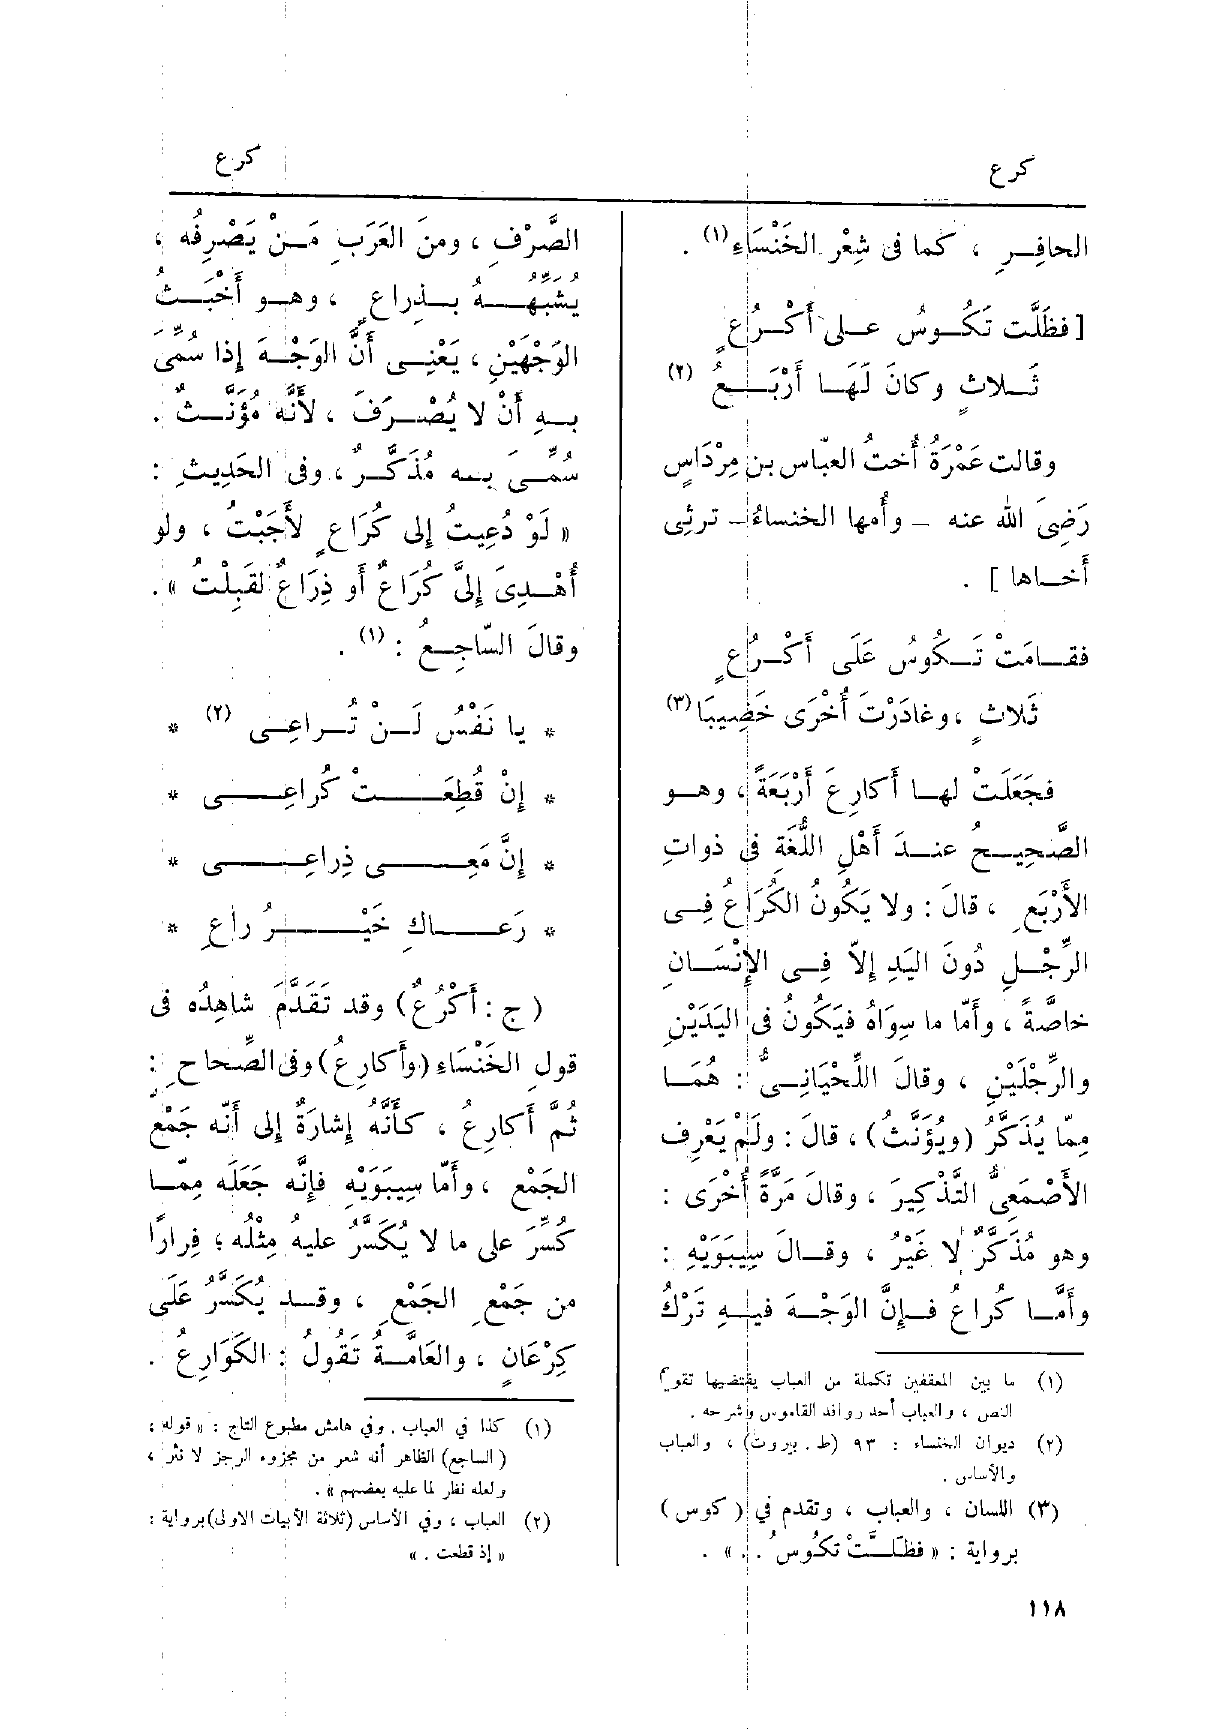 كرع
كرع
الحافِرِ ، كما فى شِعْرِ الخَنْسَاءِ (١) .
[ فظَلَّت تَكُوسُ على أَكْرُاعٍ
ثَلاثٍ وكانَ لَهَا أَرْبَعُ (٢)
وقالت عَمْرَةُ أُختُ العبّاس بن مِرْدَاسٍ
رَضِىَ الله عنه – وأُمها الخنساءُ – ترثِى
أَخاها ] .
فقامَتْ تَكُوسُ عَلَى أَكْرُاعٍ
ثَلاثٍ ، وغادَرْتَ أُخْرَى خَضِيبَا (٣)
فجَعَلَتْ لها أَكارِعَ أَرْبَعَةً ، وهو
الصَّحِيحُ عندَ أَهْلِ اللُّغَةِ فى ذواتِ
الأَرْبَعِ ، قالَ : ولا يَكُونُ الكُرَاعُ فِى
الرِّجْلِ دُونَ اليَدِ إِلاّ فِى الإِنْسَانِ
خاصَّةً ، وأَمّا ما سِوَاهُ فيَكُونُ فى اليَدَيْنِ
والرِّجْلَيْنِ ، وقالَ اللِّحْيَانِىُّ : هُمَا
مِمّا يُذَكَّرُ (ويُؤَنَّثُ) ، قالَ : ولَمْ يَعْرِف
الأَصْمَعِىُّ التَّذْكِيرَ ، وقالَ مَرَّةً أُخْرَى :
وهو مُذَكَّرٌ لا غَيْرُ ، وقالَ سِيبَوَيْهِ :
وأَمَّا كُراعُ فإِنَّ الوَجْهَ فيهِ تَرْكُ
(١) ما بين المعقفين تكملة من العباب يقتضيها تقويم
النص ، والعباب أحد روافد القاموس وشرحه .
(٢) ديوان الخنساء : ٩٣ (ط . بيروت) ، والعباب
والأساس .
(٣) اللسان ، والعباب ، وتقدم في ( كوس )
برواية : « فظَلَّتْ تكُوسُ . . » .
١١٨
الصَّرْفِ ، ومنَ العَرَبِ مَنْ يَصْرِفُه ،
يشَبِّهُهُ بذِراعٍ ، وهو أَخْبَثُ
الوَجْهَيْنِ ، يَعْنِى أَنَّ الوَجْهَ إِذا سُمِّىَ
بهِ أَنْ لا يُصْرَفَ ، لأَنَّه مُؤَنَّثٌ .
سُمِّىَ به مُذَكَّرٌ ، وفى الحَدِيثِ :
« لَوْ دُعِيتُ إِلى كُرَاعٍ لأَجَبْتُ ، ولو
أُهْدِىَ إِلىَّ كُرَاعٌ أَو ذِرَاعٌ لقَبِلْتُ » .
وقالَ السّاجِعُ : (١) .
* يا نَفْسُ لَنْ تُراعِى (٢) *
* إِنْ قُطِعَتْ كُراعِى *
* إِنَّ مَعِى ذِراعِى *
* رَعاكِ خَيْرُ راعِ *
( ج : أَكْرُعٌ ) وقد تَقَدَّمَ شاهِدُه فى
قولِ الخَنْسَاءِ (وأَكارِعُ) وفى الصِّحاحِ :
ثُمَّ أَكارِعُ ، كأَنَّهُ إِشارَةٌ إِلى أَنَّه جَمْع
الجَمْعِ ، وأَمّا سِيبَوَيْهِ فإِنَّه جَعَلَه مِمّا
كُسِّرَ على ما لا يُكَسَّرُ عليهُ مِثْلُه ؛ فِرارًا
من جَمْعِ الجَمْعِ ، وقد يُكَسَّرُ عَلَى
كِرْعَانٍ ، والعَامَّةُ تَقُولُ : الكَوَارِعُ .
(١) كذا في العباب . وفي هامش مطبوع التاج : « قوله :
(الساجع) الظاهر أنه شعر من مجزوء الرجز لا نثر ،
ولعله نظر لما عليه بعضهم » .
(٢) العباب ، وفي الأساس (ثلاثة الأبيات الاولى) برواية :
« إذ قطعت . »